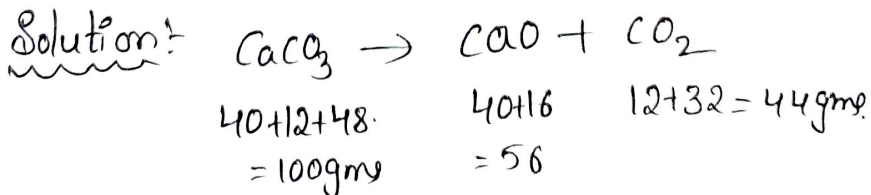 Solution:- CaCO3 → CaO + CO2
40+12+48. 40+16 12+32 = 44gms.
= 100gms = 56